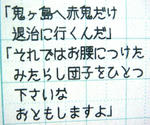 「鬼ヶ島へ赤鬼だけ
退治に行くんだ」
「それではお腰につけた
みたらし団子をひとつ
下さいな
おともしますよ」